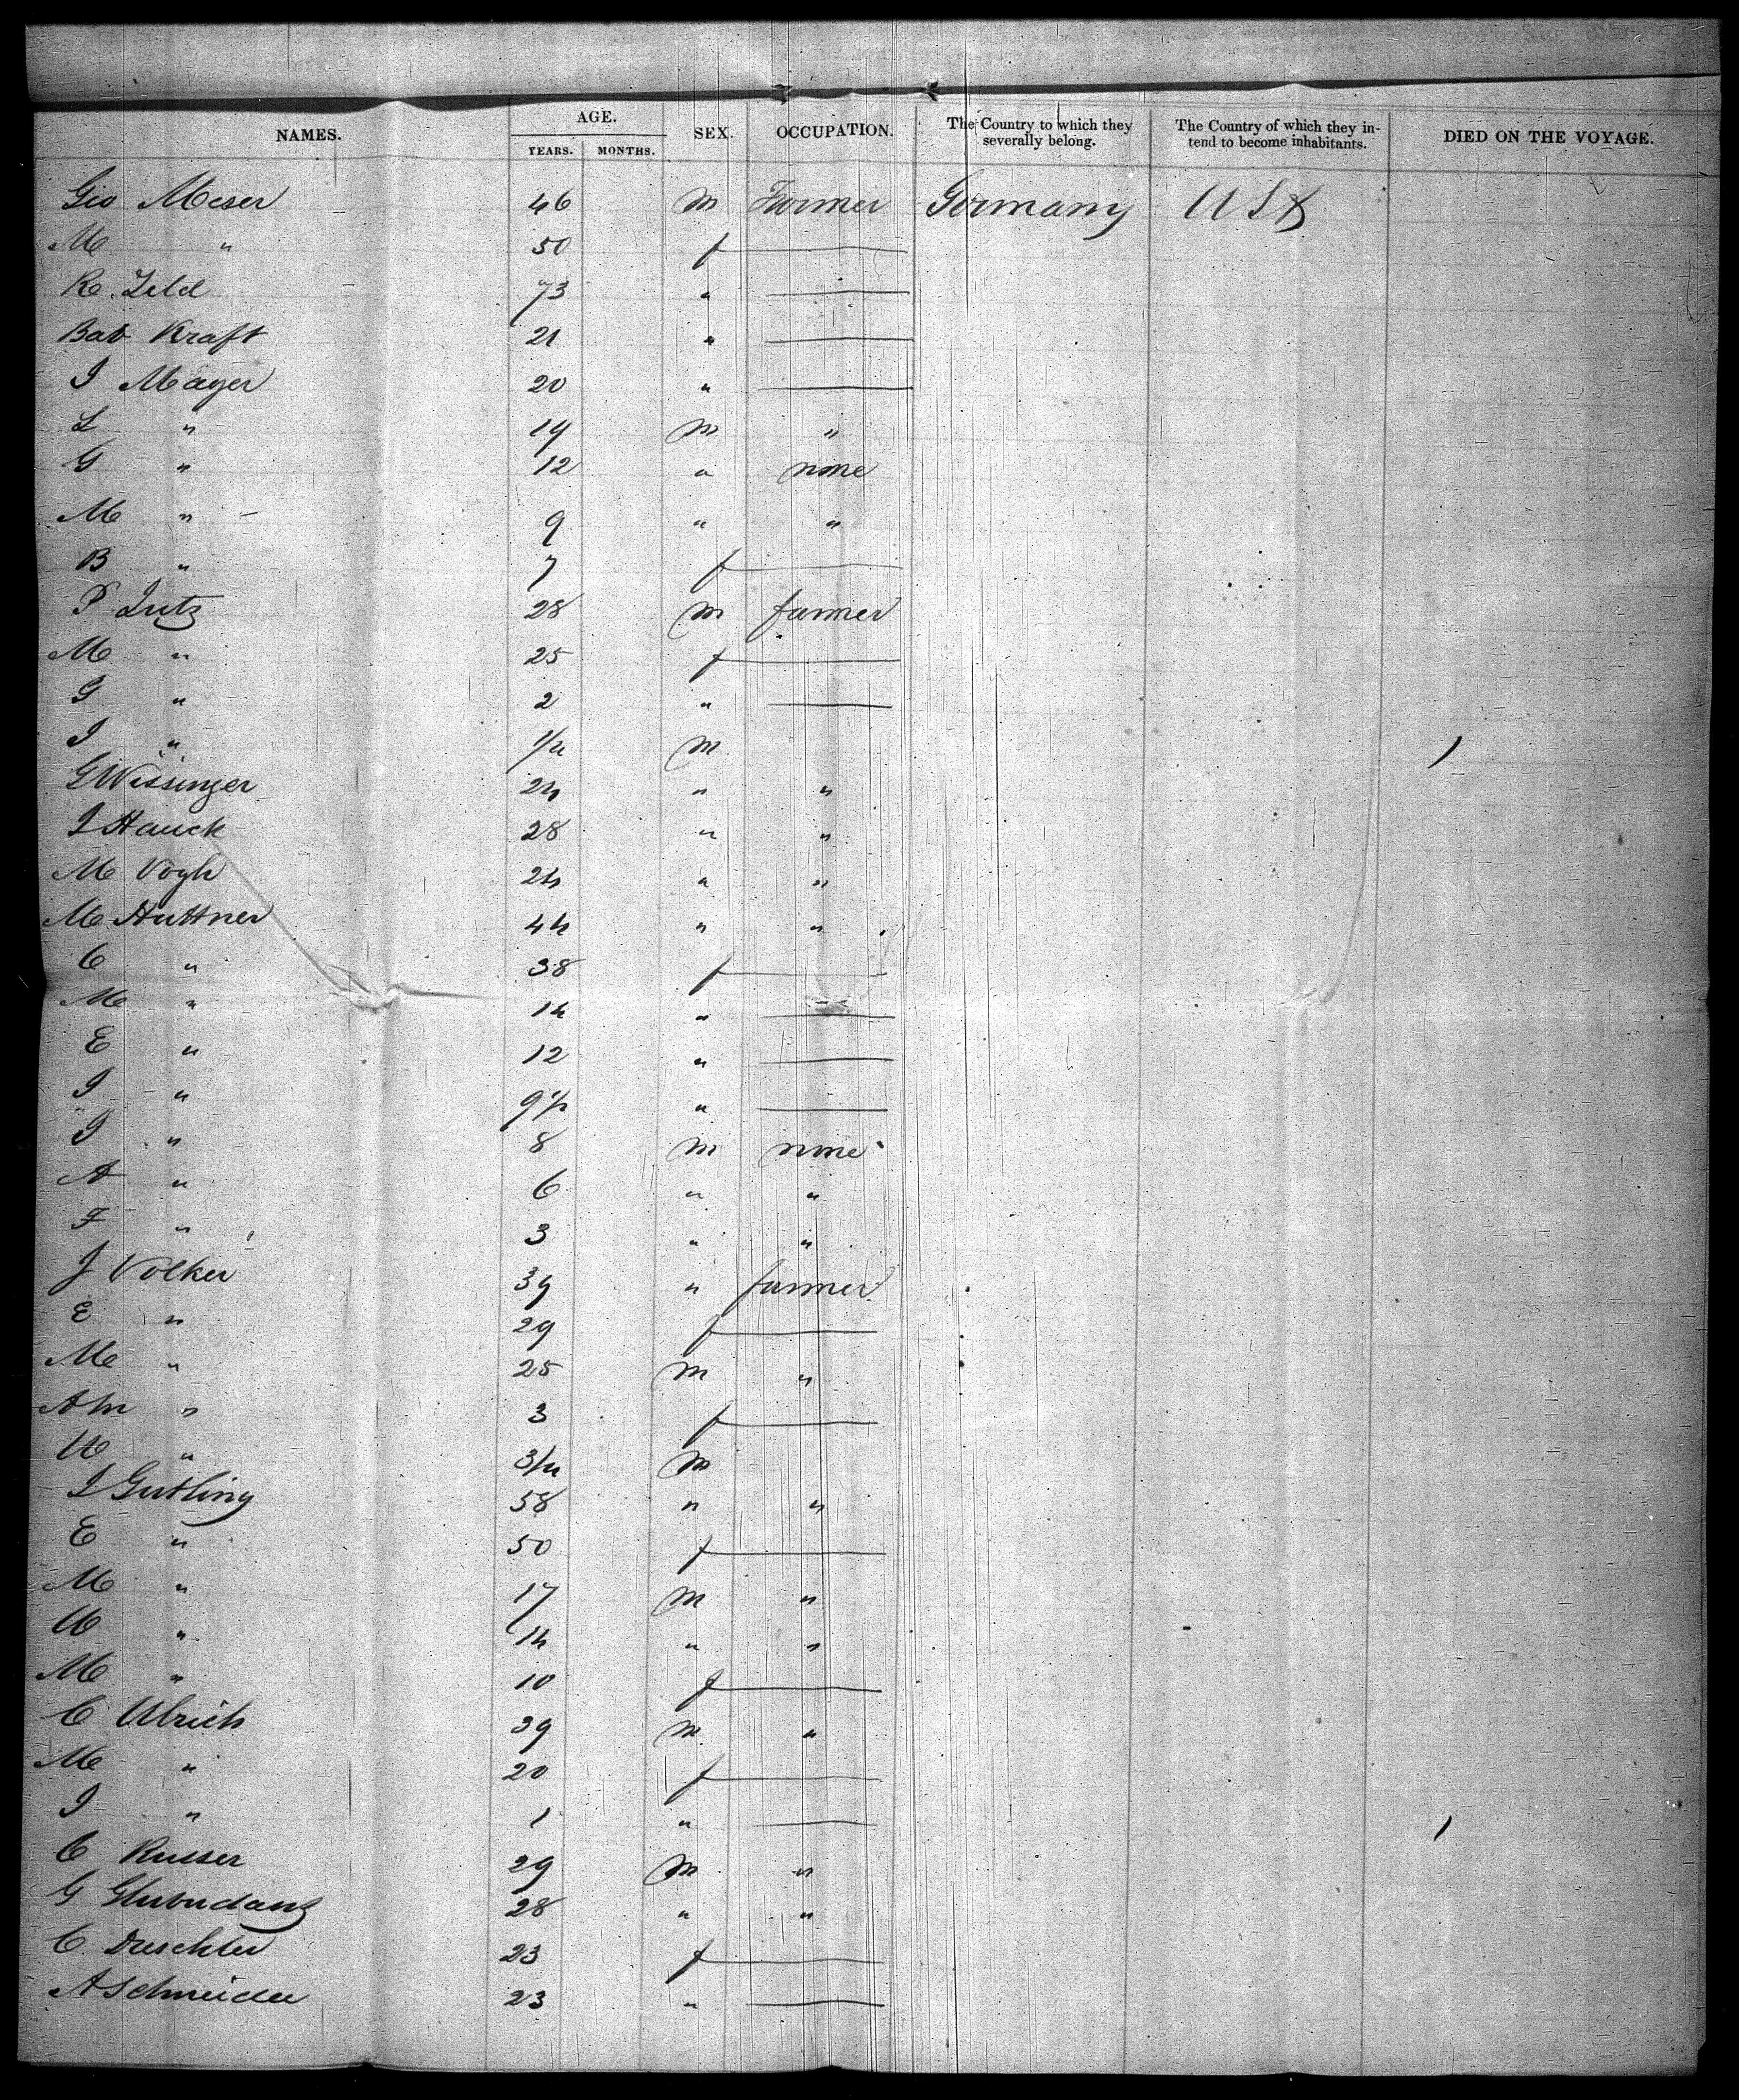 NAMES. AGE. YEARS. MONTHS. SEX. OCCUPATION. The Country to which they severally belong. The Country of which they intend to become inhabitants. DIED ON THE VOYAGE.
Geo Meser 46 m Farmer Germany USA
M " 50 f —
R. Feld 73 " —
Bab Kraft 21 " —
I Mayer 20 " —
L " 19 m "
G " 12 " none
M " 9 " "
B " 7 f —
P Lutz 28 m farmer
M " 25 f —
G " 2 " —
I " 1/2 m 1
G Wissinger 24 " "
I Hauck 28 " "
M Vogh 24 " "
M Huttner 44 " "
C " 38 f —
M " 14 " —
E " 12 " —
I " 9 1/2 " —
I " 8 m none
A " 6 " "
F " 3 " "
J Volker 39 " farmer
E " 29 f —
M " 25 m "
AM " 3 f —
U " 3/4 m
I Gutling 58 " "
E " 50 f —
M " 17 m "
U " 14 " "
M " 10 f —
C Ulrich 39 m "
M " 20 f —
I " 1 " — 1
C Russer 29 m "
G 28 " "
C. Dreschler 23 f —
A Schneider 23 " —